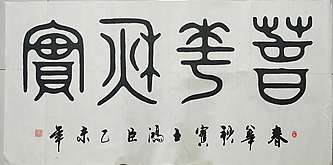 春華秋實
春華秋實王鴻臣乙未年